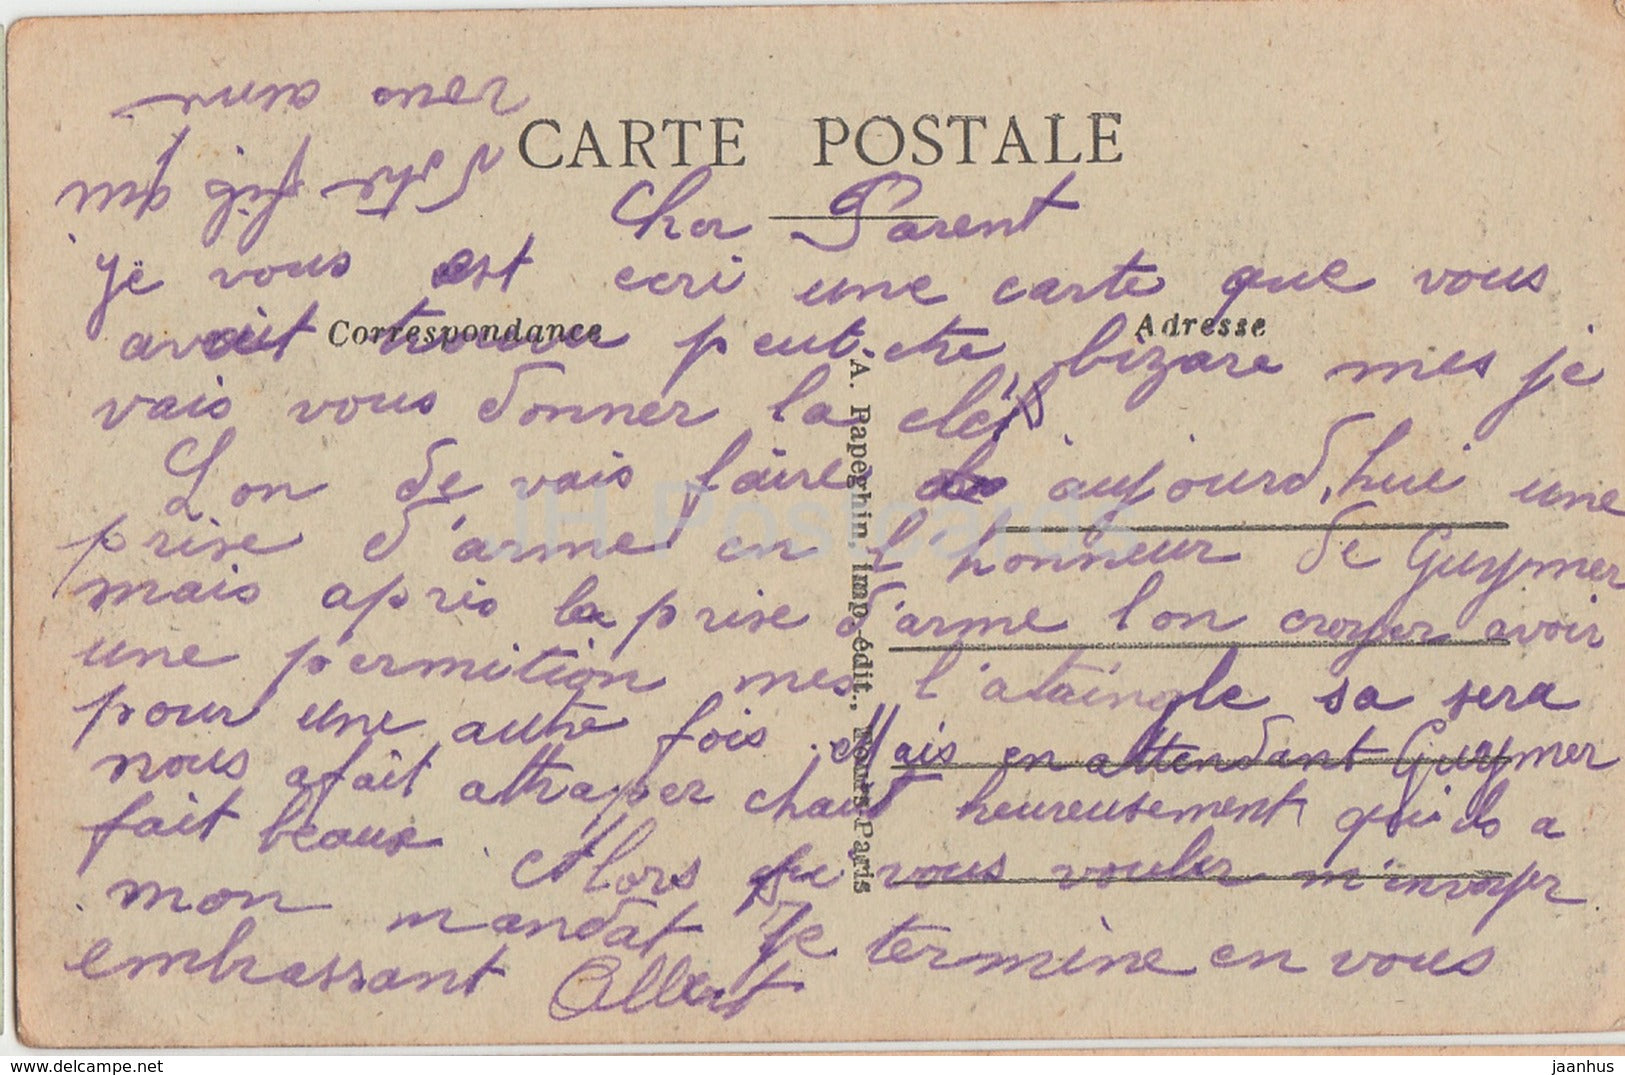 CARTE POSTALE
Cher Parent
je vous est ecri une carte que vous
Correspondance
Adresse
avait trouver peut-etre bizare mes je
vais vous donner la clef
Lon de vais faire aujourd,hui une
prise d'arme en l'honneur de Guymer
mais apres la prise d'arme lon croyer avoir
une permition mes l'ataingle sa sera
pour une autre fois. Mais en attendant Guymer
nous afait attraper chaut heureusement qui ds a
fait beaux. Alors si vous vouler m'envoyer
mon mandat Je termine en vous
embrassant Albert
Votre fils qui
vous aime
A. Papeghin, imp.-édit., Tours-Paris
JH Postcards
delcampe.net
jaanhus